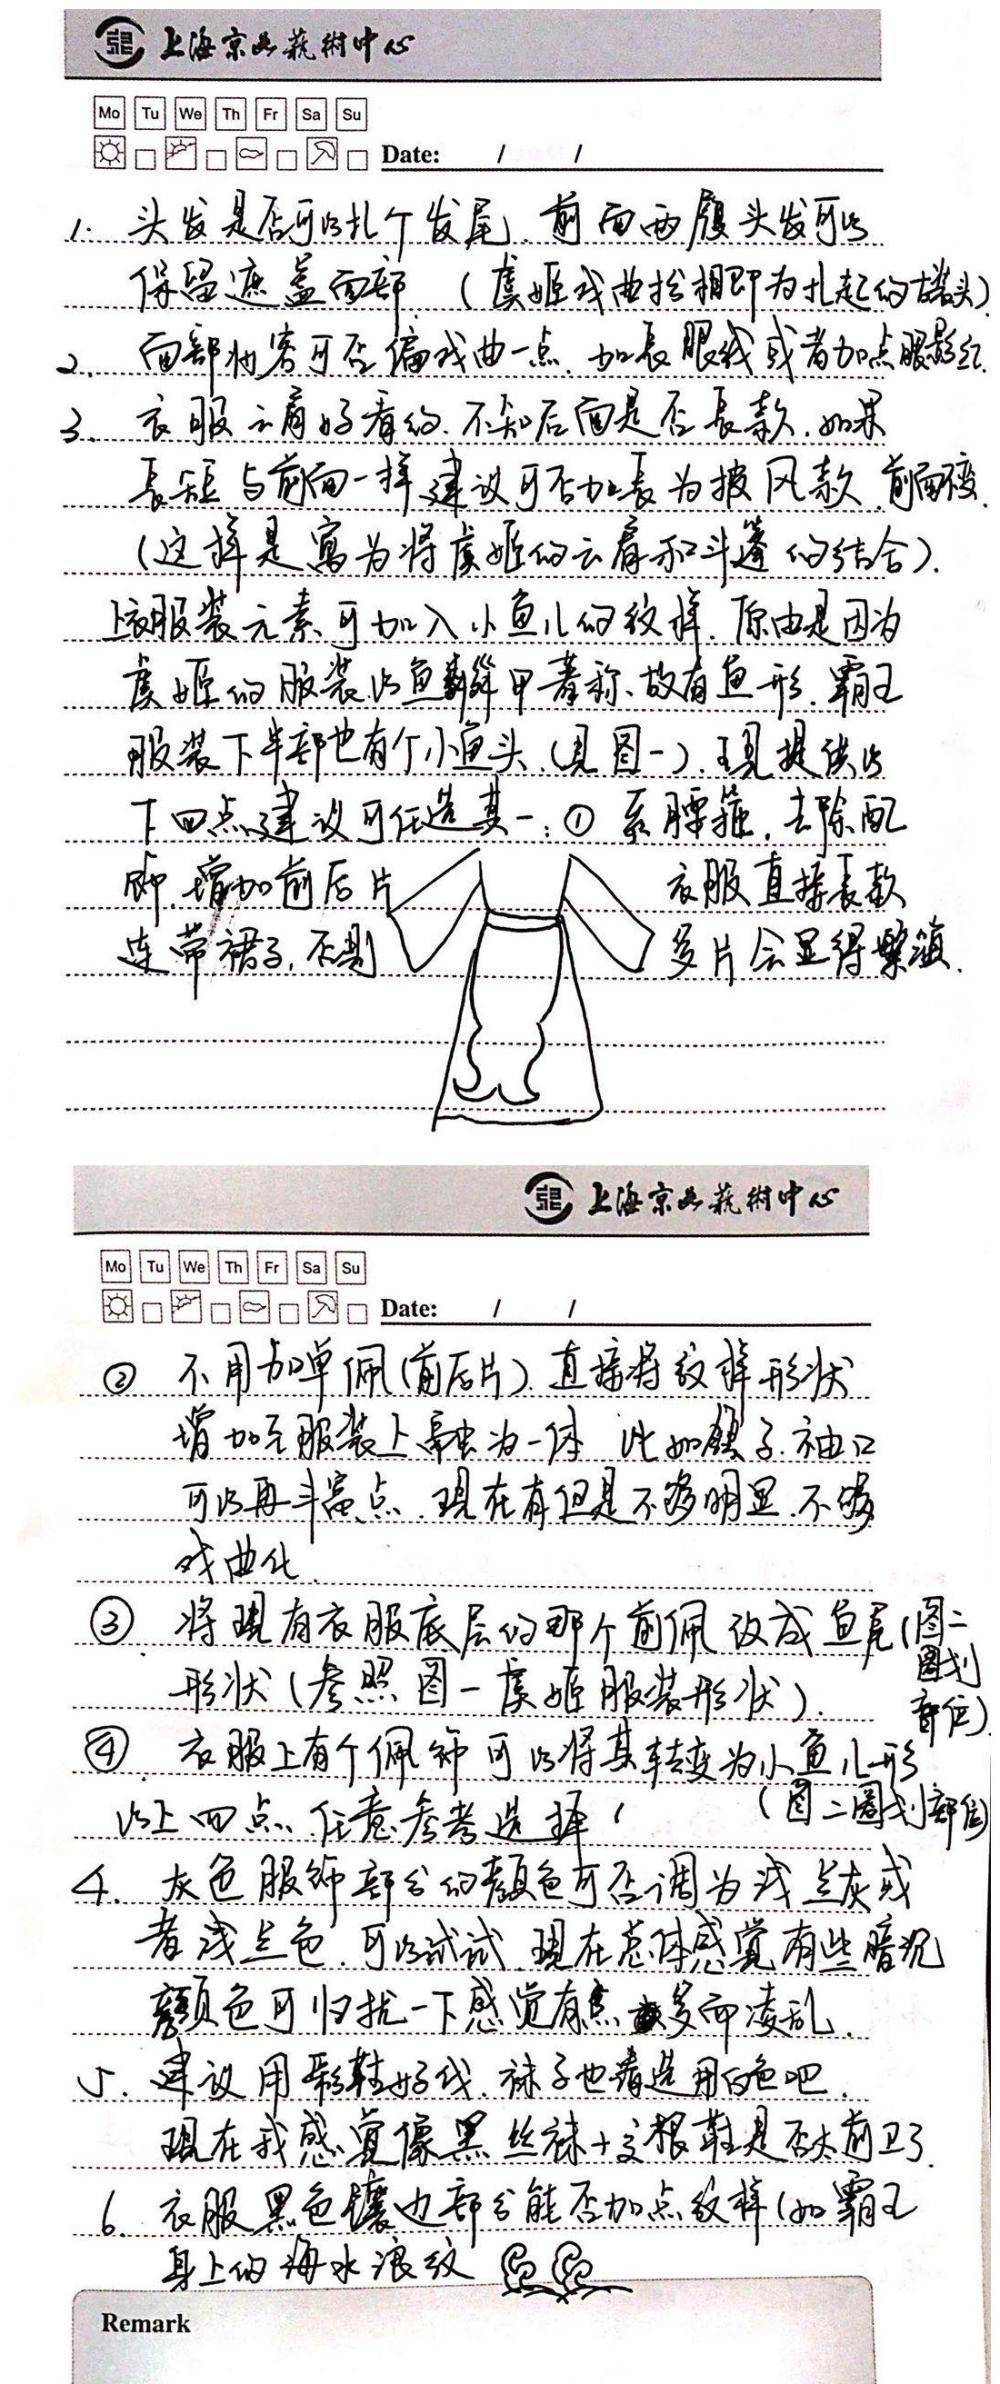 上海京昆藝術中心
Mo Tu We Th Fr Sa Su
Date: / /
1. 头发是否可以扎个发尾、前面两屡头发可以
保留遮盖面部 (虞姬戏曲扮相即为扎起的古装头)
2. 面部妆容可否偏戏曲一点、如長眼线或者加点眼影红.
3. 衣服云肩好看的、不知后面是否長款、如果
長短与前面一样建议可否加長为披风款、前面不变.
(这样是寓为将虞姬的云肩和斗篷的结合).
上衣服装元素可加入小鱼儿的纹样、原由是因为
虞姬的服装以鱼鳞甲著称、故有鱼形、霸王
服装下半部也有个小鱼头(見图一)、現提供以
下四点建议可任选其一: ① 系腰箍、去除配
饰、增加前后片 衣服直接長款
连带裙子、否则 多片会显得繁琐.
上海京昆藝術中心
Mo Tu We Th Fr Sa Su
Date: / /
② 不用加单佩(前后片)、直接将纹样形状
增加至服装上融为一体 比如领子、袖口
可以再丰富点、現在有但是不够明显、不够
戏曲化.
③ 将現有衣服底层的那个前佩改成鱼尾(图二
圈划
部位)
形状(参照图一虞姬服装形状).
④ 衣服上有个佩饰可以将其转变为小鱼儿形
(图二圈划部位)
以上四点、任意参考选择!
4. 灰色服饰部分的颜色可否调为浅点灰或
者浅点色、可以试试、現在总体感觉有些暗沉
颜色可归拢一下感觉有点多而凌乱.
5. 建议用彩鞋好伐、袜子也着选用白色吧.
現在我感觉像黑丝袜+高根鞋是否太前卫了.
6. 衣服黑色镶边部分能否加点纹样(如霸王
身上的海水浪纹
Remark